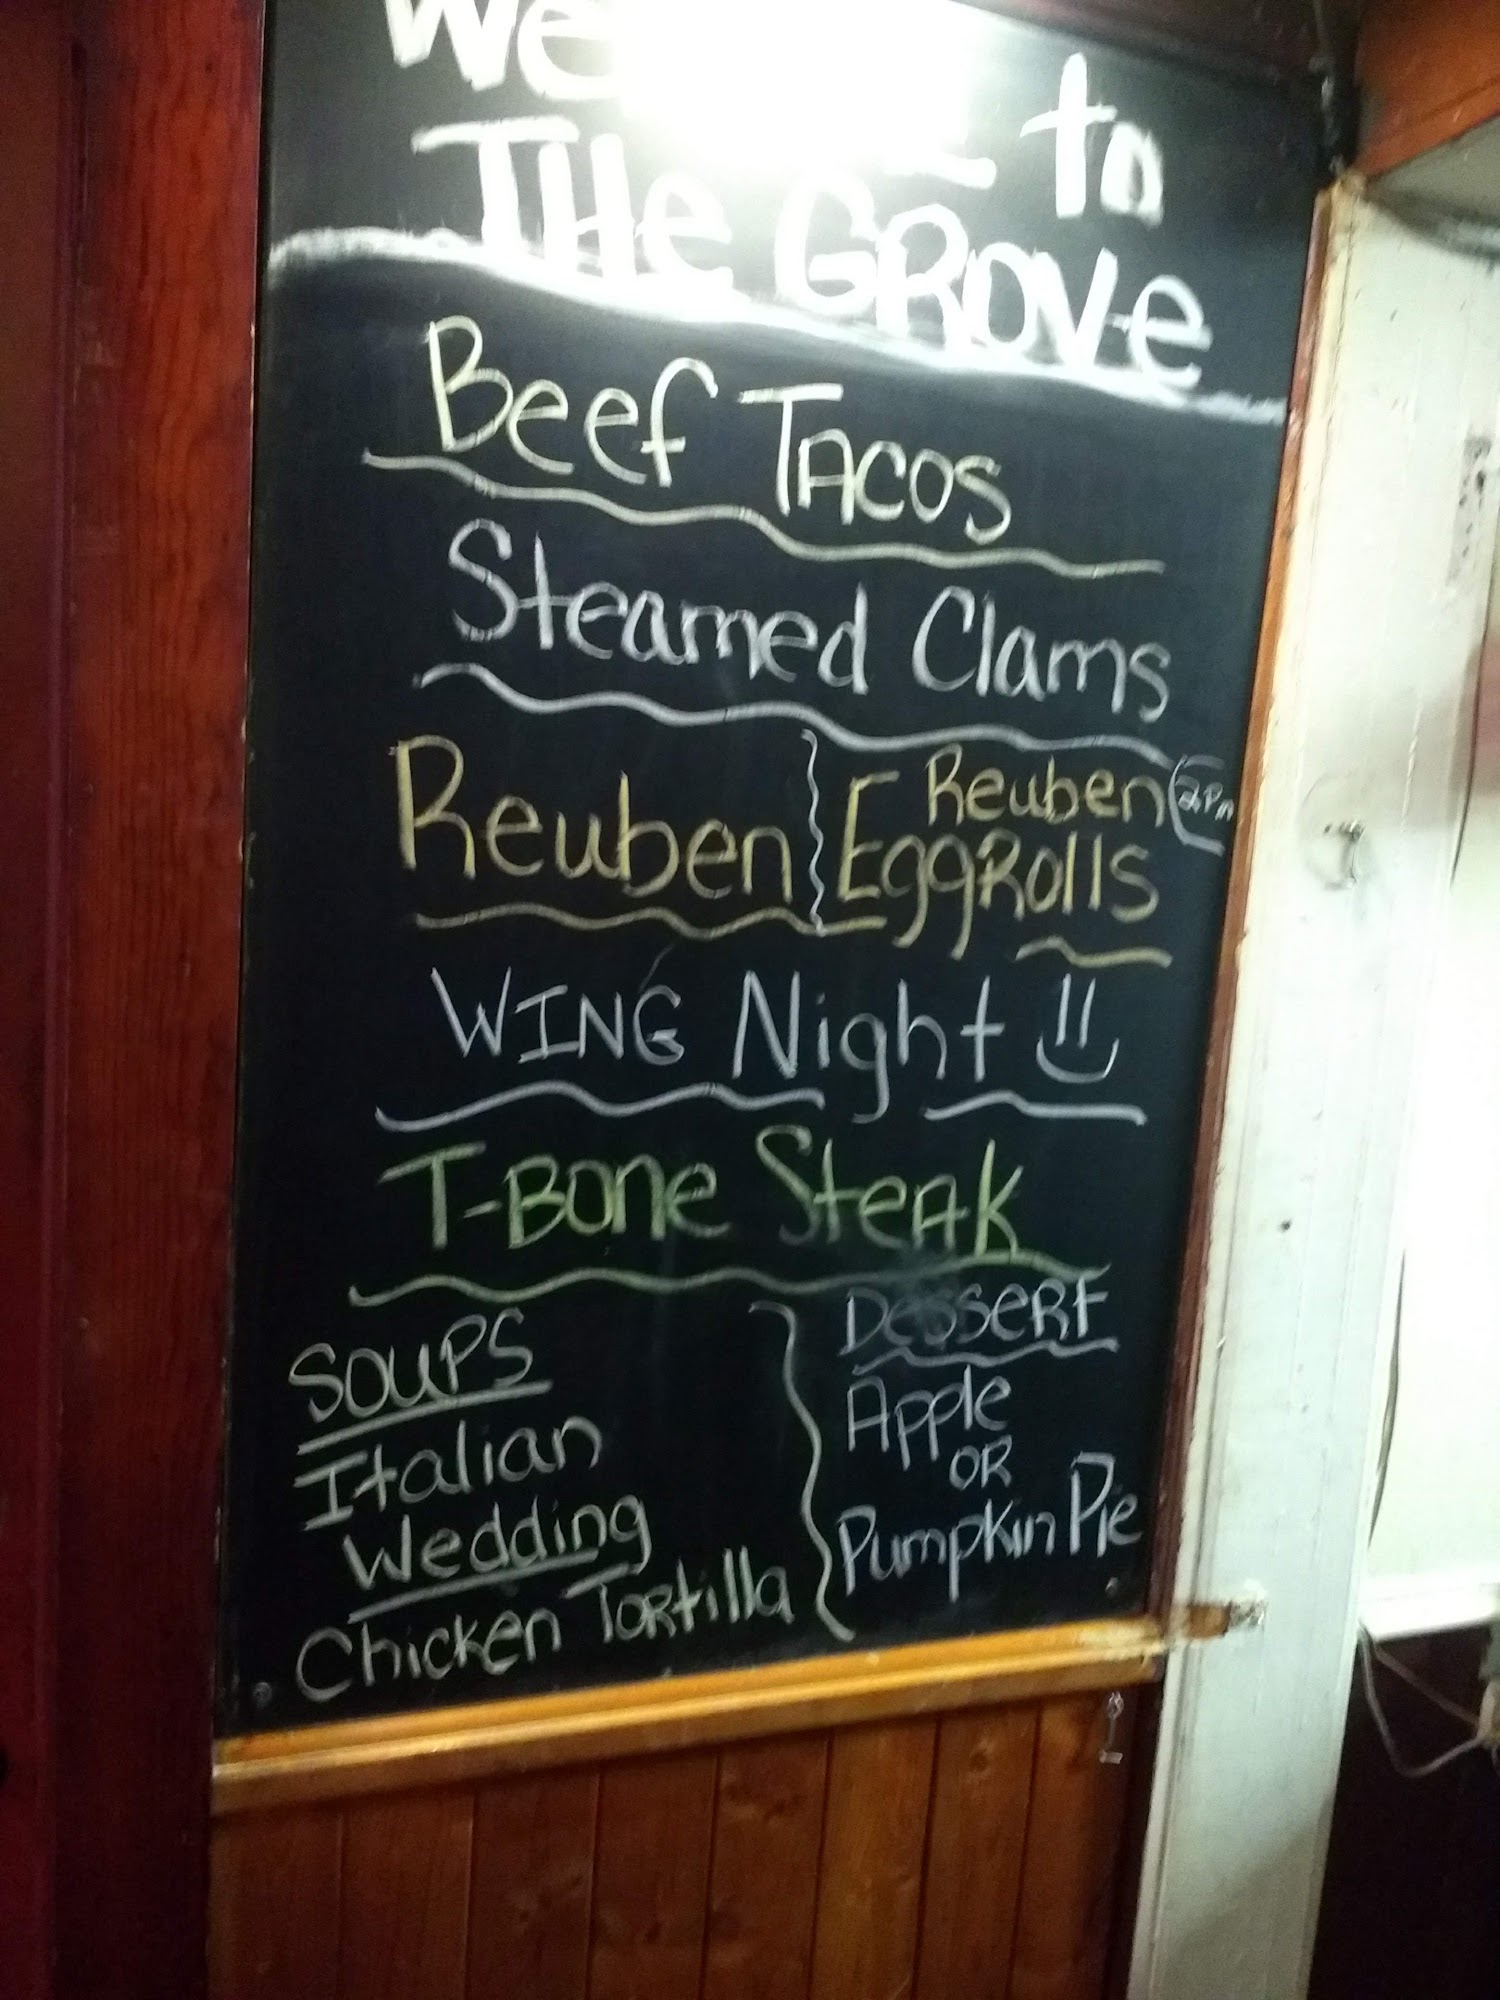 to
THe GROVe
Beef TACOS
Steamed Clams
Reuben
Reuben
EggRolls
WING Night
T-BONe SteAK
SOUPS
Italian
Wedding
Chicken Tortilla
DesserT
Apple
OR
Pumpkin Pie